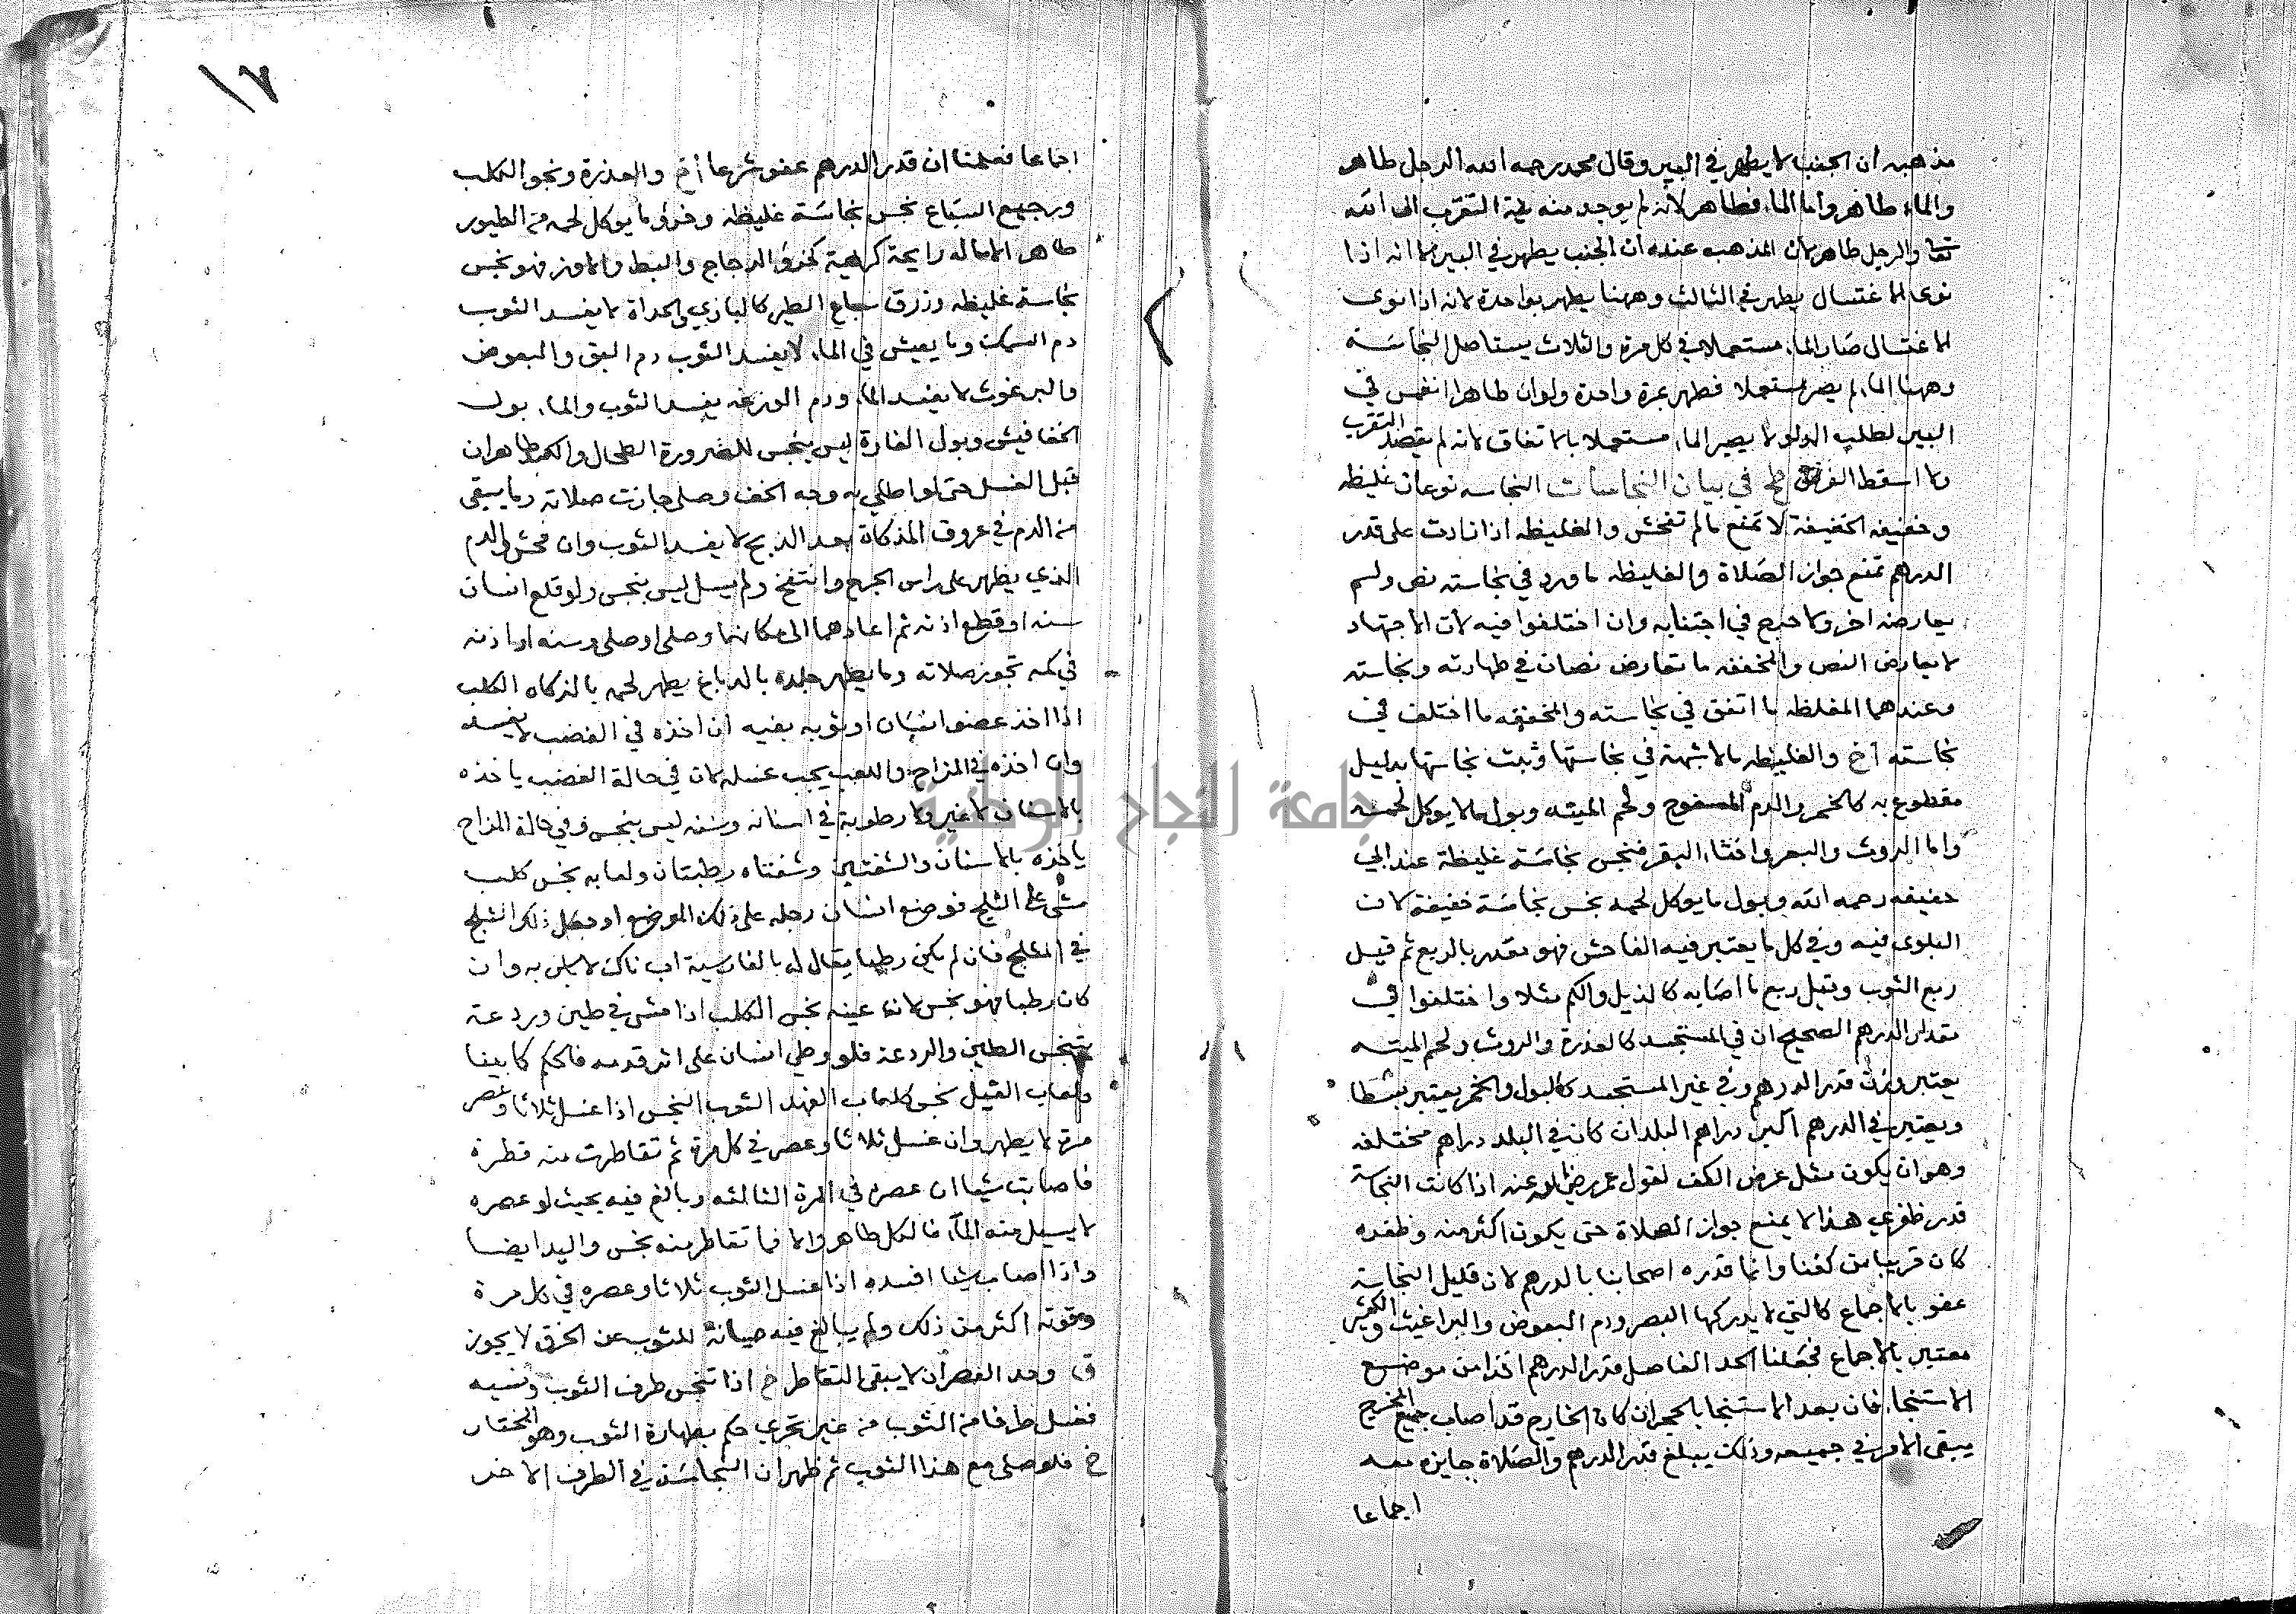 مذهبه ان الجنب لا يطهر في البير وقال محمد رحمه الله الرجل طاهر
والماء طاهر وأما الماء فطاهر لأنه لم يوجد منه نية التقرب الى الله
تعا والرجل طاهر لأن المذهب عنده ان الجنب يطهر في البير الا انه اذا
نوى الاغتسال يطهر في الثالث وههنا يطهر بواحدة لانه اذا نوى
الاغتسال صار الماء مستعملا في كل مرة والثلاث يستاصل النجاسة
وههنا الماء لم يصر مستعملا فطهر بمرة واحدة ولو ان طاهرا انغمس في
البير لطلب الدلو لا يصير الماء مستعملا بالاتفاق لانه لم يقصد التقرب
ولا اسقط الفرض في بيان النجاسات النجاسه نوعان غليظه
وخفيفه الخفيفة لا تمنع مالم تفحش والغليظه اذا زادت على قدر
الدرهم تمنع جواز الصلاة والغليظه ما ورد في نجاسته نص ولم
يعارضه اخر ولا حرج في اجتنابه وان اختلفوا فيه لأن الأجتهاد
لا يعارض النص والمخففه ما تعارض نصان في طهارته ونجاسته
وعندهما المغلظه ما اتفق في نجاسته والمخففه ما اختلف في
نجاسته أخ والغليظه مالا شبهة في نجاستها وثبت نجاستها بدليل
مقطوع به كالخمر والدم المسفوح ولحم الميته وبول مالا يوكل لحمه
واما الروث والبعر واخثاء البقر فنجس نجاسة غليظة عند ابي
حنيفه رحمه الله وبول ما يوكل لحمه نجس نجاسة خفيفة لان
البلوى فيه وفي كل ما يعتبر فيه الفاحش فهو مقدر بالربع ثم قيل
ربع الثوب وقيل ربع ما اصابه كالذيل والكم مثلا واختلفوا في
مقدار الدرهم الصحيح ان في المستجسد كالعذرة والروث ولحم الميته
يعتبر وزن قدر الدرهم وفي غير المستجسد كالبول والخمر يعتبر بسطا
ويعتبر في الدرهم اكبر دراهم البلد ان كان في البلد دراهم مختلفه
وهو ان يكون مثل عرض الكف لقول عمر رضي الله عنه اذا كانت النجاسة
قدر ظفري هذا لا يمنع جواز الصلاة حتى يكون اكثر منه وظفره
كان قريبا من كفنا وانما قدره اصحابنا بالدرهم لان قليل النجاسة
عفو بالاجماع كالتي لا يدركها البصر ودم البعوض والبراغيث والكثير
معتبر بالاجماع فجعلنا الحد الفاصل قدر الدرهم اخذا من موضع
الاستنجاء فان بعد الاستنجا بالحجر ان كان الخارج قد اصاب جميع المخرج
يبقى الاثر في جميعه وذلك يبلغ قدر الدرهم والصلاة جايزه معه
اجماعا
١٧
اجماعا فعلمنا ان قدر الدرهم عفو شرعا أخ والعذرة ونجو الكلب
ورجيع السباع نجس نجاسة غليظه وخرؤ ما يوكل لحمه من الطيور
طاهر الا ماله رايحة كراهية كخرؤ الدجاج والبط والاوز فهو نجس
نجاسة غليظه وزرق سباع الطير كالبازي والحداة لا يفسد الثوب
دم السمك وما يعيش في الماء لا يفسد الثوب دم البق والبعوض
والبرغوث لا يفسد الماء ودم الوزغه يفسد الثوب والماء بول
الخفافيش وبول الفارة ليس بنجس للضرورة الطحال والكبد طاهران
قبل الغسل حتى لو اطلي به وجه الخف وصلى جازت صلاته وما يبقى
من الدم في عروق المذكاة بعد الذبح لا يفسد الثوب وان فحش الدم
الذي يظهر على راس الجرح وانتفخ ولم يسل ليس بنجس ولو قلع انسان
سنه او قطع اذنه ثم اعادهما الى مكانهما وصلى او صلى وسنه او اذنه
في كمه تجوز صلاته وما يطهر جلده بالدباغ يطهر لحمه بالذكاه الكلب
اذا اخذ عضو انسان او ثوبه بفيه ان اخذه في الغضب لا يفسده
وان اخذه في المزاح واللعب يجب غسله لان في حالة الغضب ياخذه
بالاسنان لا غير ولا رطوبة في اسنانه وسنه ليس بنجس وفي حالة المزاح
ياخذه بالاسنان والشفتين وشفتاه رطبتان ولعابه نجس كلب
مشى على الثلج فوضع انسان رجله على ذلك الموضع او جعل ذلك الثلج
في المثلج فان لم يكن رطبا يقال له بالفارسية اب ناك لاباس به وان
كان رطبا فهو نجس لان عينه نجس الكلب اذا مشى في طين وردعة
يتنجس الطين والردعة فلو وطي انسان على اثر قدمه فالحكم كما بينا
ولعاب الفيل نجس كلعاب الفهد الثوب النجس اذا غسل ثلاثا وعصر
مرة لا يطهر وان غسل ثلاثا وعصر في كل مرة ثم تقاطرت منه قطرة
فاصابت شيا ان عصره في المرة الثالثه وبالغ فيه بحيث لو عصره
لا يسيل منه الماء فالكل طاهر والا فما تقاطر منه نجس واليد ايضا
واذا اصاب شيا افسده اذا غسل الثوب ثلاثا وعصره في كل مرة
وقوته اكثر من ذلك ولم يبالغ فيه صيانة للثوب عن الخرق لا يجوز
ق وحد العصر ان لا يبقى التقاطر خ اذا تنجس طرف الثوب ونسيه
فغسل طرفا من الثوب من غير تحري حكم بطهارة الثوب وهو المختار
خ فلو صلى مع هذا الثوب ثم ظهر ان النجاسة في الطرف الاخر
جامعة النجاح الوطنية